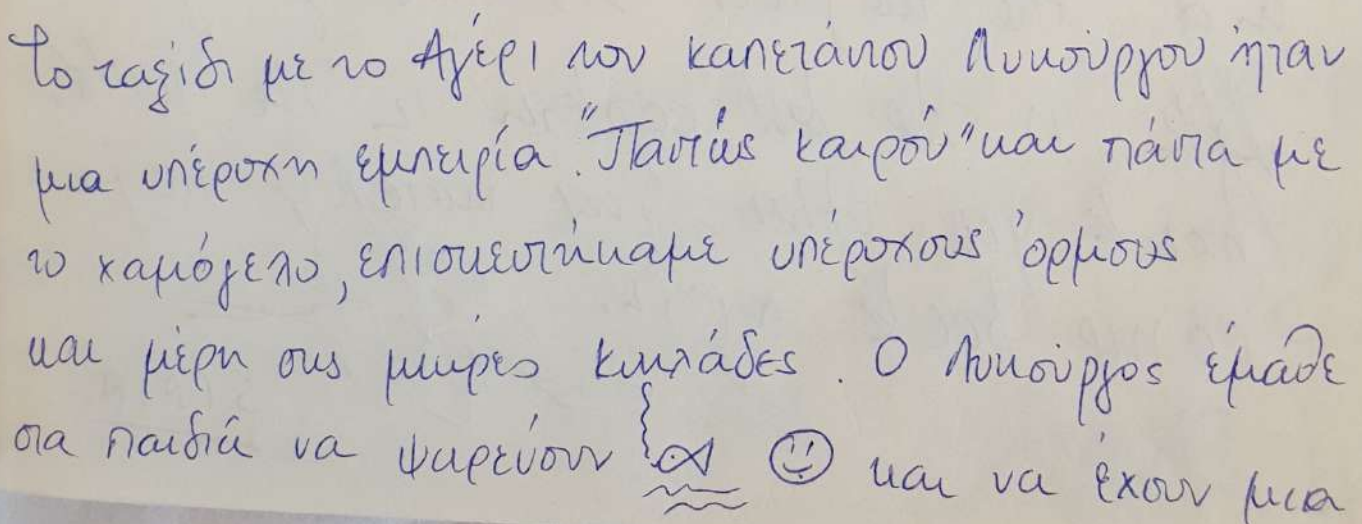 Το ταξίδι με το Αγέρι του καπετάνιου Λυκούργου ήταν
μια υπέροχη εμπειρία. "Παντώς καιρού" και πάντα με
το χαμόγελο, επισκεφτήκαμε υπέροχους όρμους
και μέρη στις μικρές Κυκλάδες. Ο Λυκούργος έμαθε
στα παιδιά να ψαρεύουν και να έχουν μια